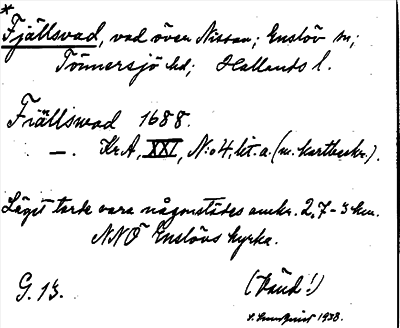 *
Fjällsvad, vad över Nissan; Enslöv sn;
Tönnersjö hd; Hallands l.
Fiällswad 1688.
—. Kr.A, XXI, N:o 4, lit. a. (m. kartbeskr.).
Läget torde vara någonstädes omkr. 2,7-3 km.
NNÖ Enslövs kyrka.
G. 13. (Vänd!)
1938.